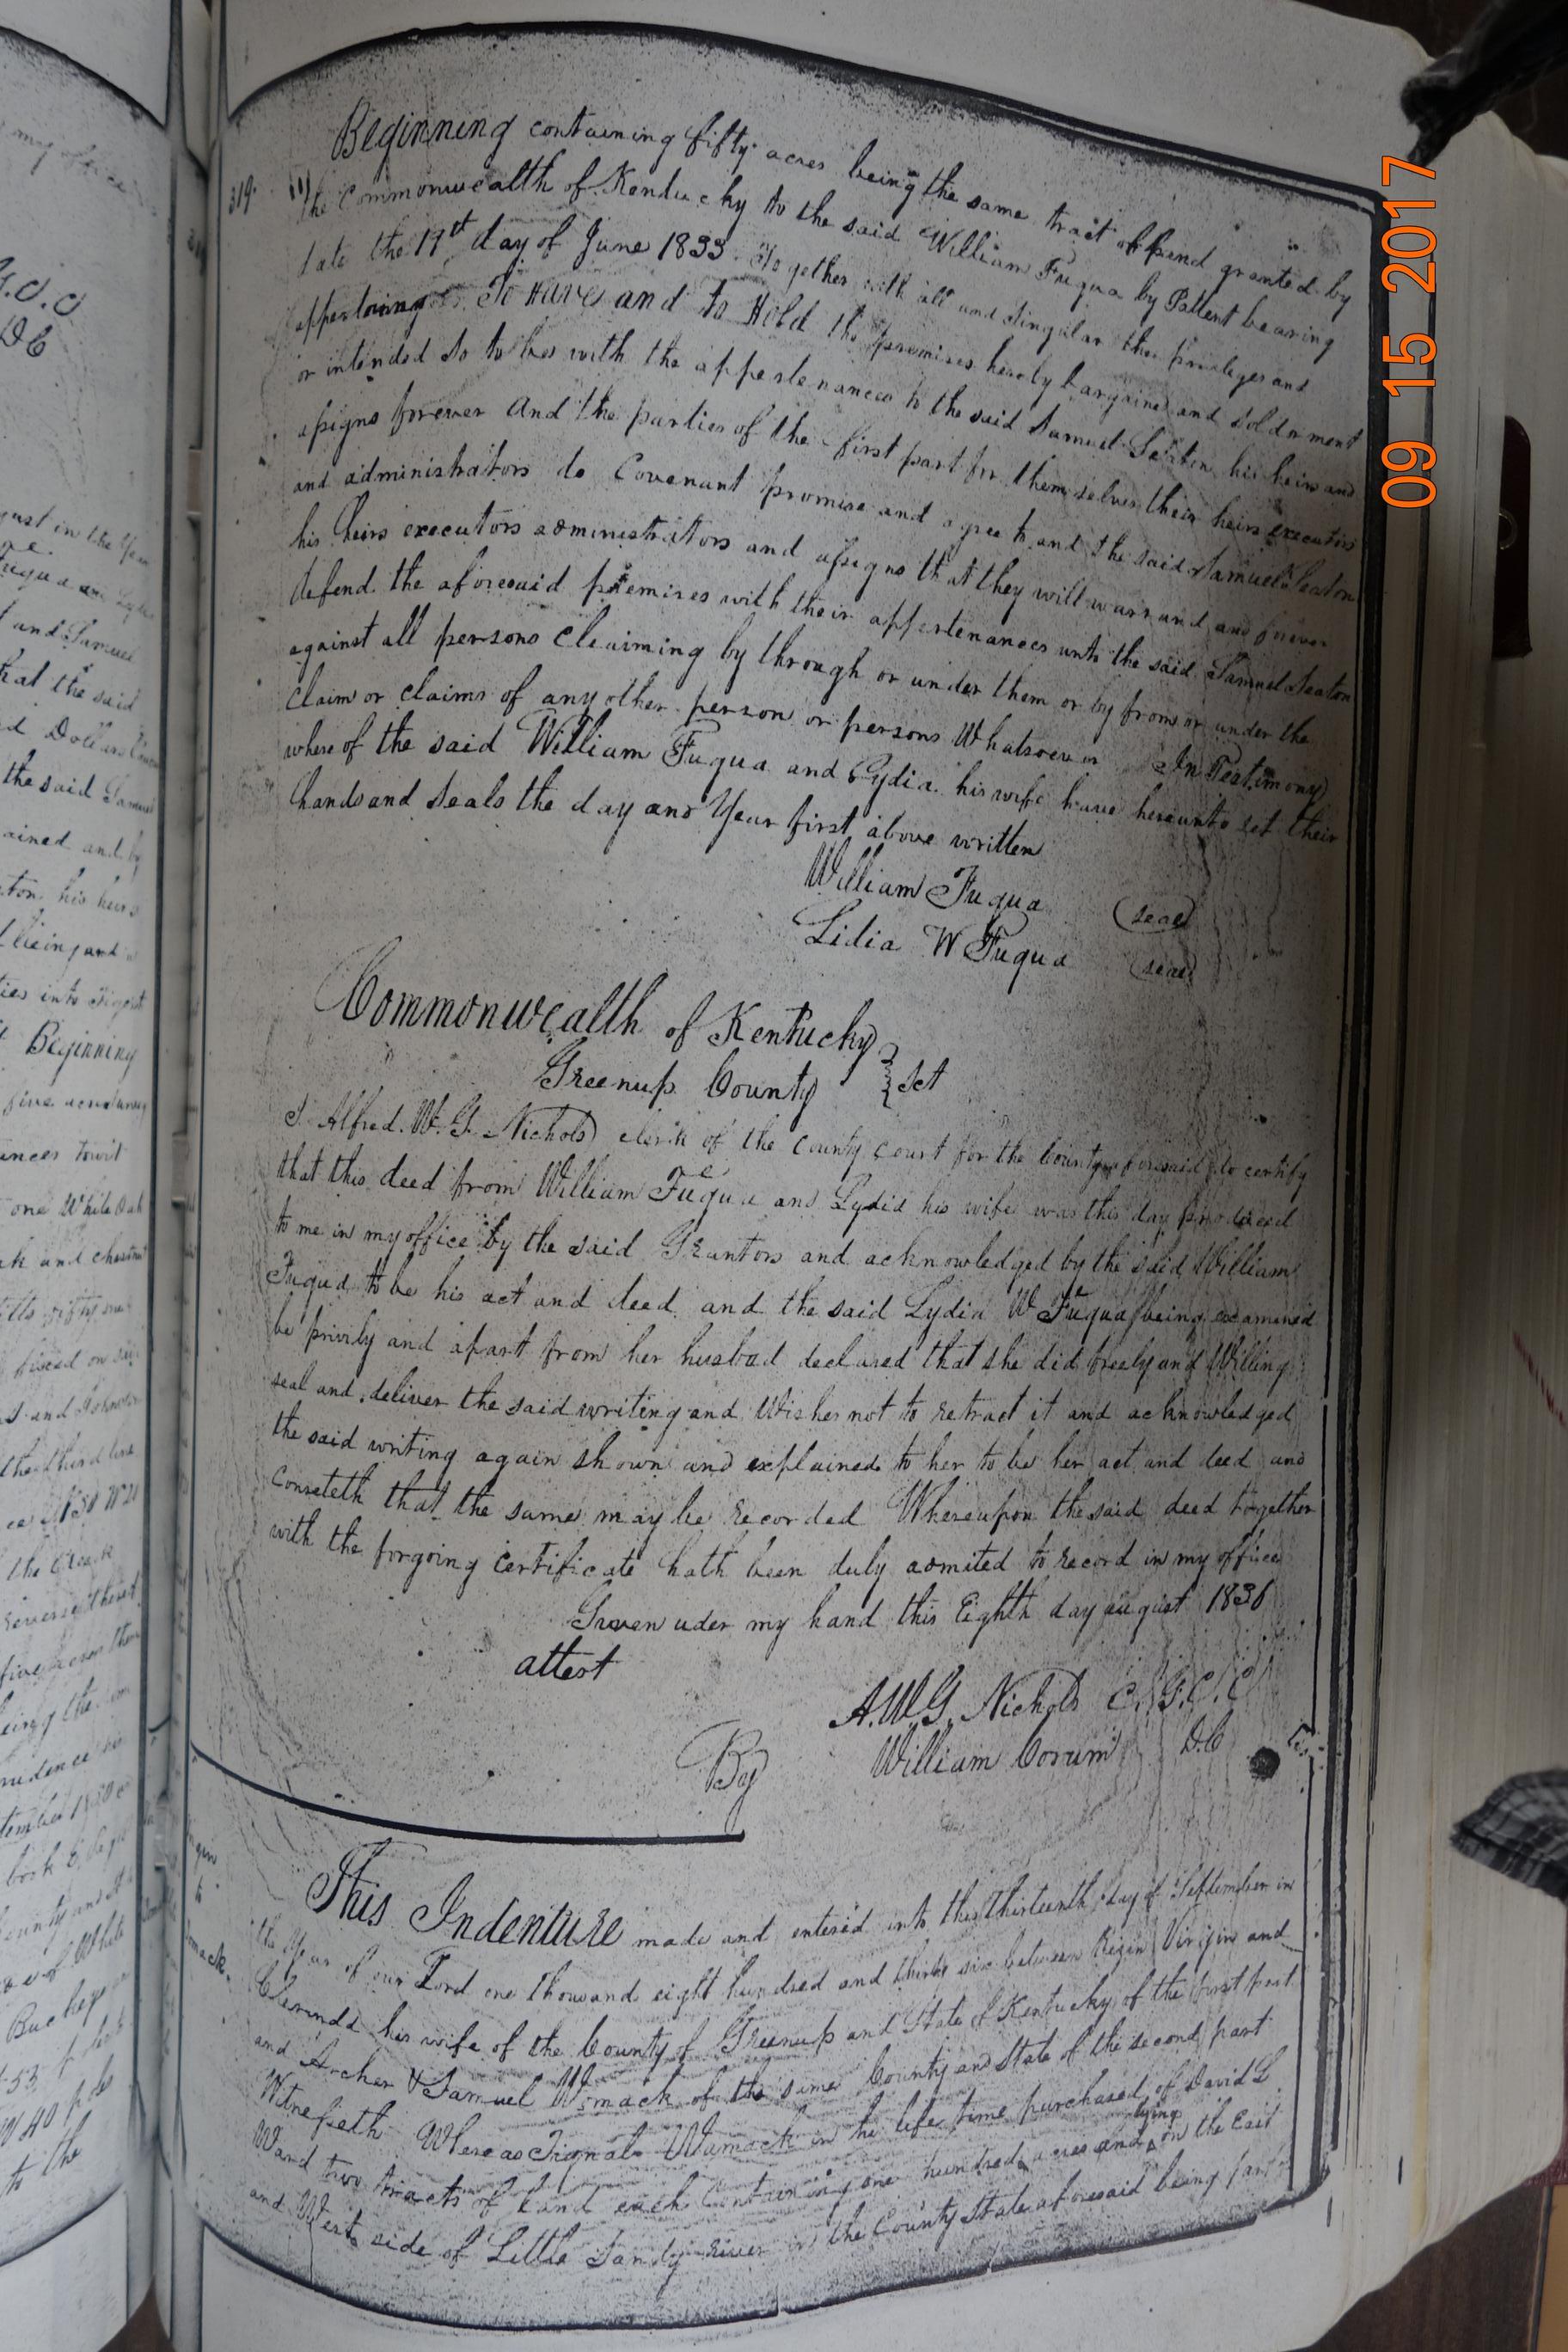 319.
Beginning containing fifty acres being the same tract of land granted by
the Commonwealth of Kentucky to the said William Fuqua by Pattent bearing
date the 19th day of June 1833. Together with all and singular the privileges and
appertaining To Have and To Hold the premises hereby bargained and sold or ment
or intended so to be with the appertenances to the said Samuel Seaton his heirs and
assigns forever And the parties of the first part for themselves their heirs executors
and administrators do Covenant promise and agree to and the said Samuel Seaton
his heirs executors administrators and assigns that they will warrand and forever
defend the aforesaid premises with their appertenances unto the said Samuel Seaton
against all persons Claiming by through or under them or by from or under the
Claim or claims of any other person or persons Whatsoever In Testimony
where of the said William Fuqua and Lydia his wife have hereunto set their
hands and Seals the day and Year first above written
William Fuqua (seal)
Lidia W Fuqua (seal)
Commonwealth of Kentucky
Greenup County } Sct
I Alfred. W. G. Nichols clerk of the County Court for the County aforesaid do certify
that this deed from William Fuqua and Lydia his wife was this day produced
to me in my office by the said Grantors and acknowledged by the said William
Fuqua to be his act and deed and the said Lydia W Fuqua being examined
be privily and apart from her husbad declared that she did freely and Willing
seal and deliver the said writing and Wishes not to retract it and acknowledged
the said writing again shown and explained to her to be her act and deed and
Conseteth that the same may be recorded Whereupon the said deed together
with the forgoing certificate hath been duly admited to record in my office
Given uder my hand this Eighth day august 1836
attest
A. W. G. Nichols C. G. C. C
By William Corum D. C
This Indenture made and entered into this thirteenth day of September in
the Year of our Lord one thousand eight hundred and thirty six between Rezin Virgin and
Clerinda his wife of the County of Greenup and State of Kentucky of the first part
and Archer & Samuel Womack of the same County and State of the second part
Witnesseth Whereas Tignal Womack in his life time purchased of David L
Ward two tracts of Land each Containing one hundred acres and lying on the East
and West side of Little Sandy River in the County State aforesaid being part
09 15 2017